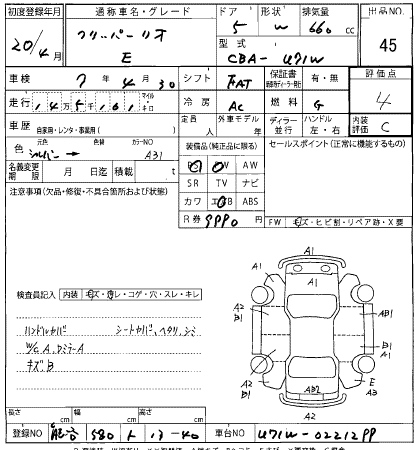 初度登録年月 通称車名・グレード ドア 形状 排気量 出品NO.
20/4月 クリッパーリオ 5 W 660cc 45
E 型式 CBA-U71W
車検 7 4 30 シフト FAT 保証書 有・無 評価点
走行 14万5千161 マイル・キロ 冷房 AC 燃料 G 4
車歴 自家用・レンタ・事業用( ) 定員 人 外車モデル 年 ディーラー 並行 ハンドル 左・右 内装評価 C
色 元色 シルバー → 色替 カラーNO A31 装備品(純正品に限る) セールスポイント(正常に機能するもの)
PS PW AW
名義変更期限 月 日迄 積載 t SR TV ナビ
注意事項(欠品・修復・不具合箇所および状態) カワ エアB ABS
R券 9990円 FW キズ・ヒビ割・リペア跡・X要
A1
A1 A1
検査員記入 内装 キズ・汚レ・コゲ・穴・スレ・キレ
A2 B1 AB1
ハンドルカバー シートカバー、ヘタリ、シミ
W/C A、Dミラー A B1 B1 A1
キズ B
A2 B1 AB2 E A3
A2
長さ cm 幅 cm 高さ cm
登録NO 熊谷 580 ト 13-40 車台NO U71W-02212PP